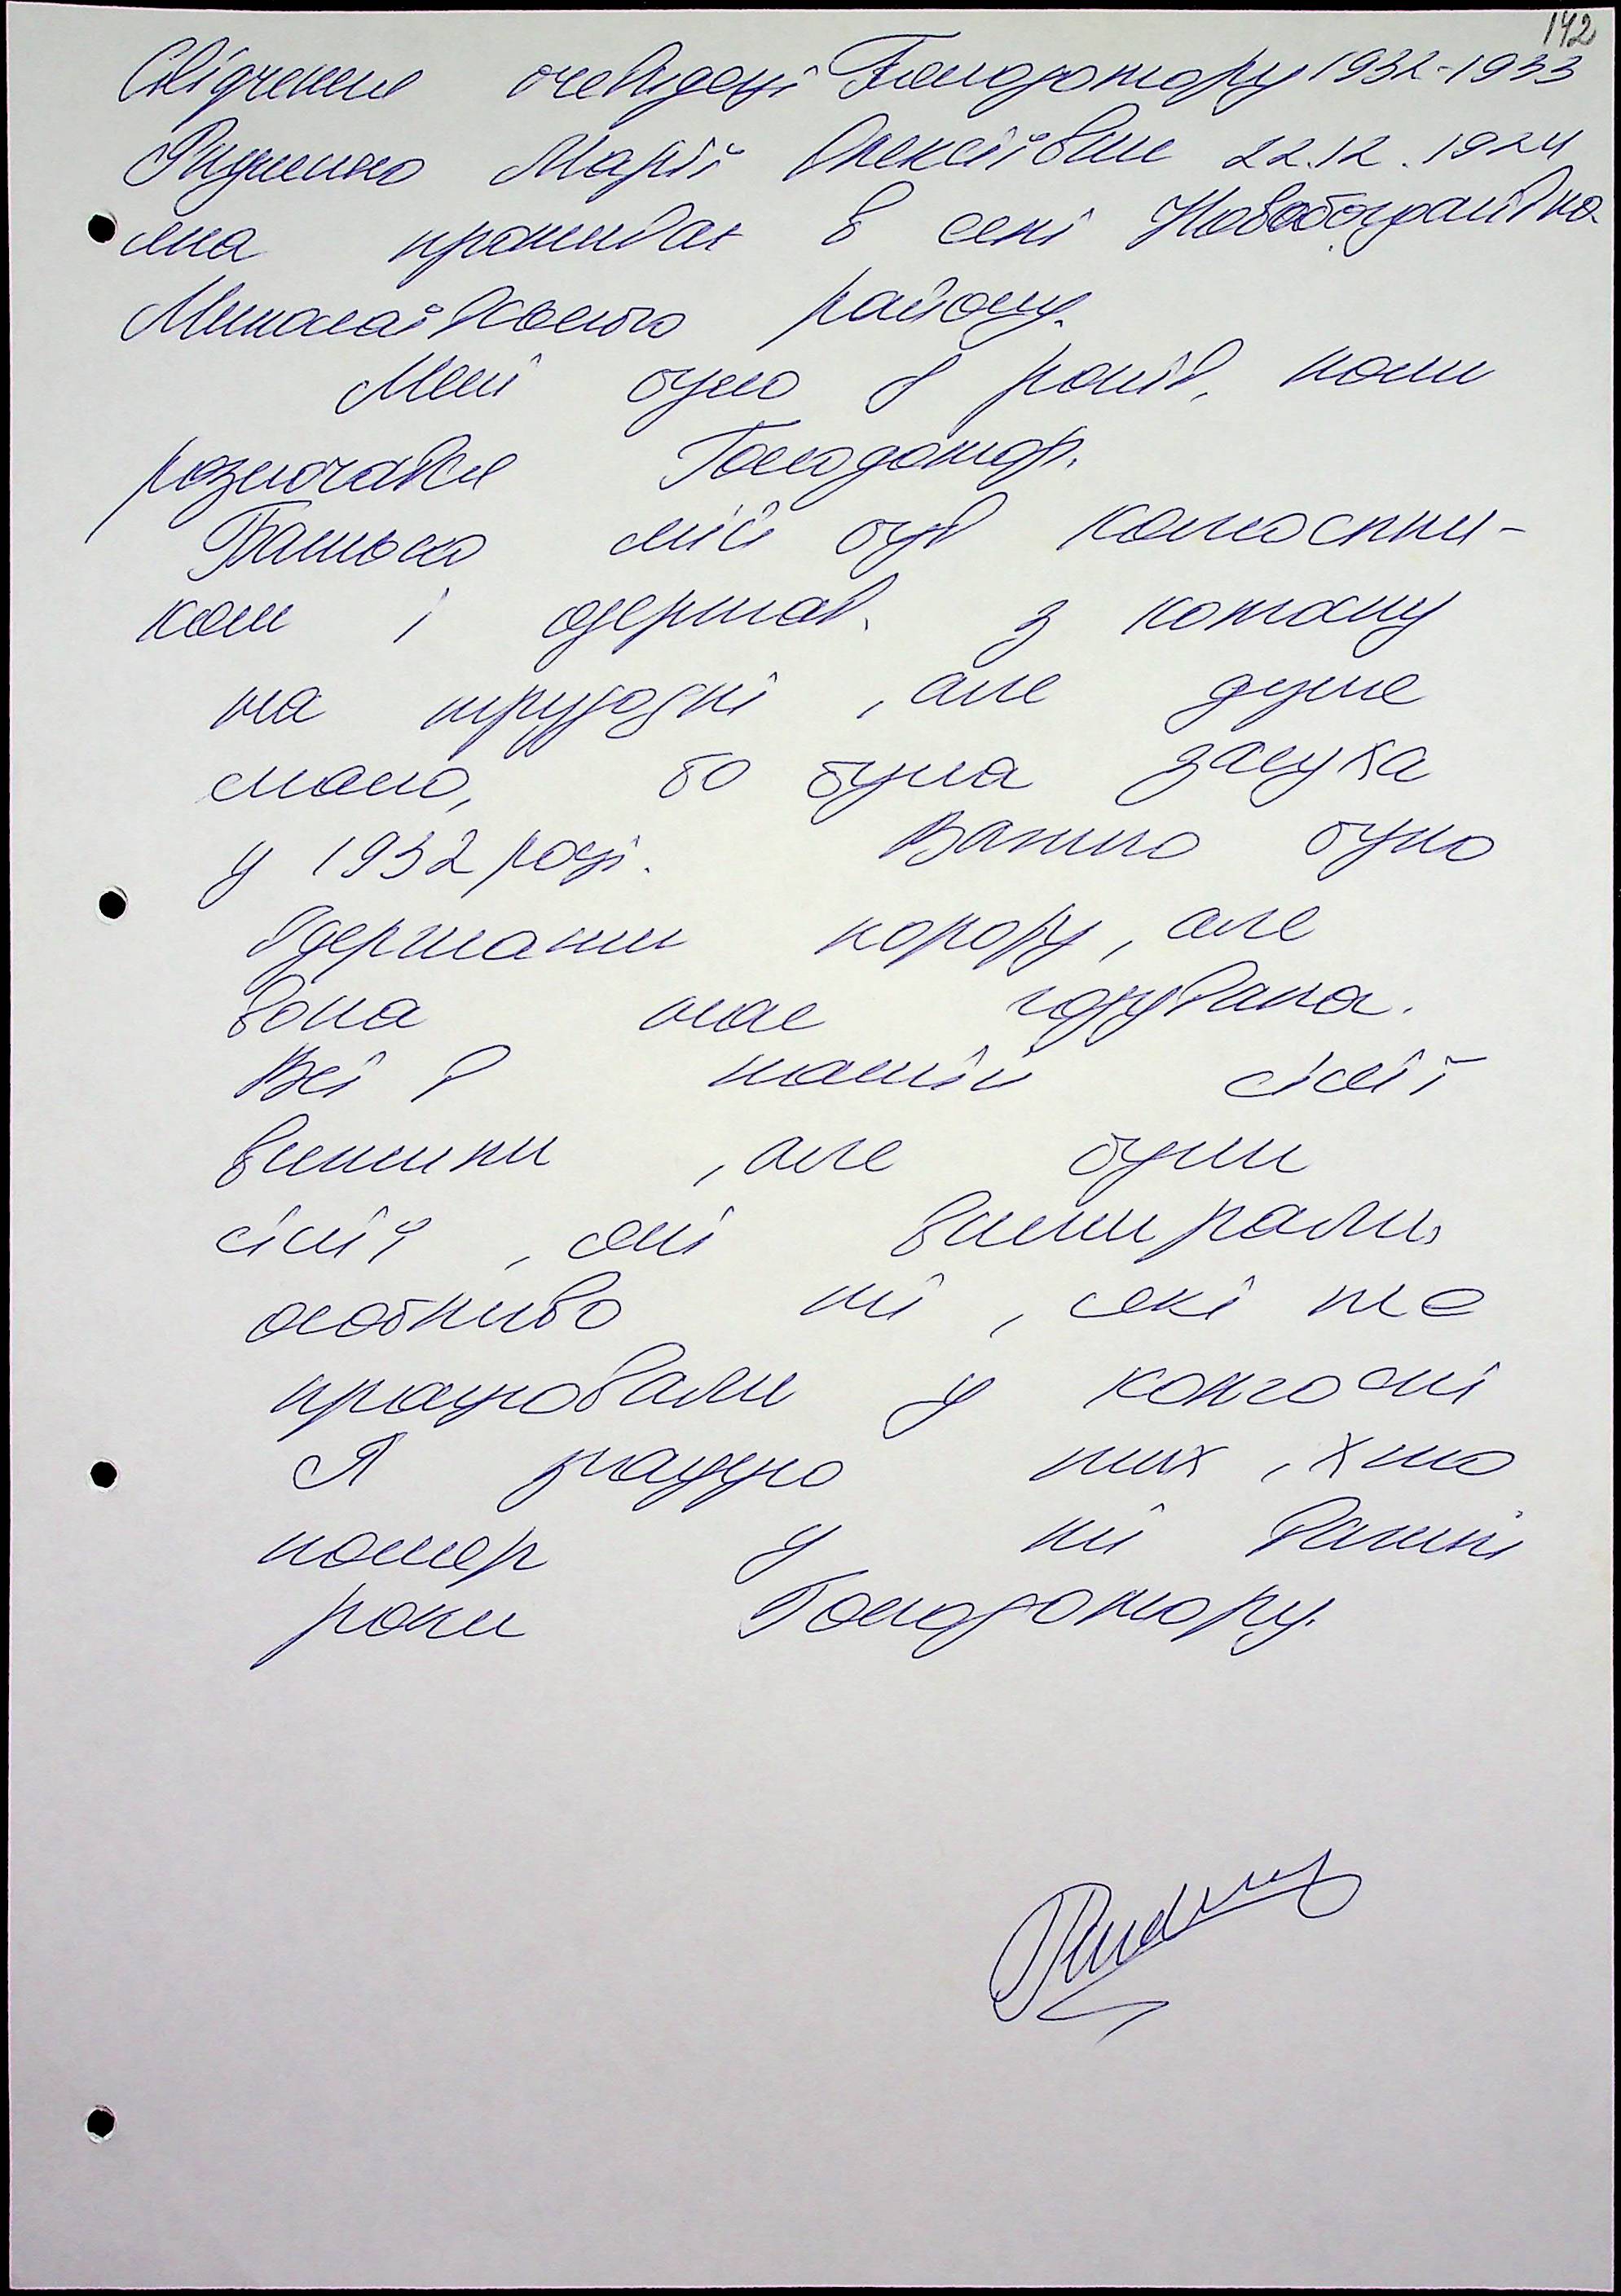 142
Свідчення очевидці Голодомору 1932-1933
Руденко Марії Олексіївни 22.12.1924
яка проживає в селі Новобогданівка
Миколаївського району.
Мені було 8 років, коли
розпочався Голодомор.
Батько мій був колгоспни-
ком і одержав з колгоспу
на трудодні, але дуже
мало, бо була засуха
у 1932 році. Важко було
вдержати корову, але
вона нас годувала.
Всі в нашій сім'ї
вижили, але були
сім'ї, які вимирали,
особливо ті, які не
працювали у колгоспі
Я згадую тих, хто
помер у ті важкі
роки Голодомору.